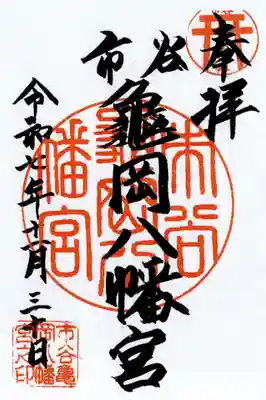 奉拝
市谷
龜岡八幡宮
令和七年十一月三十日
市谷
幡宮
市谷亀
岡八幡
宮之印